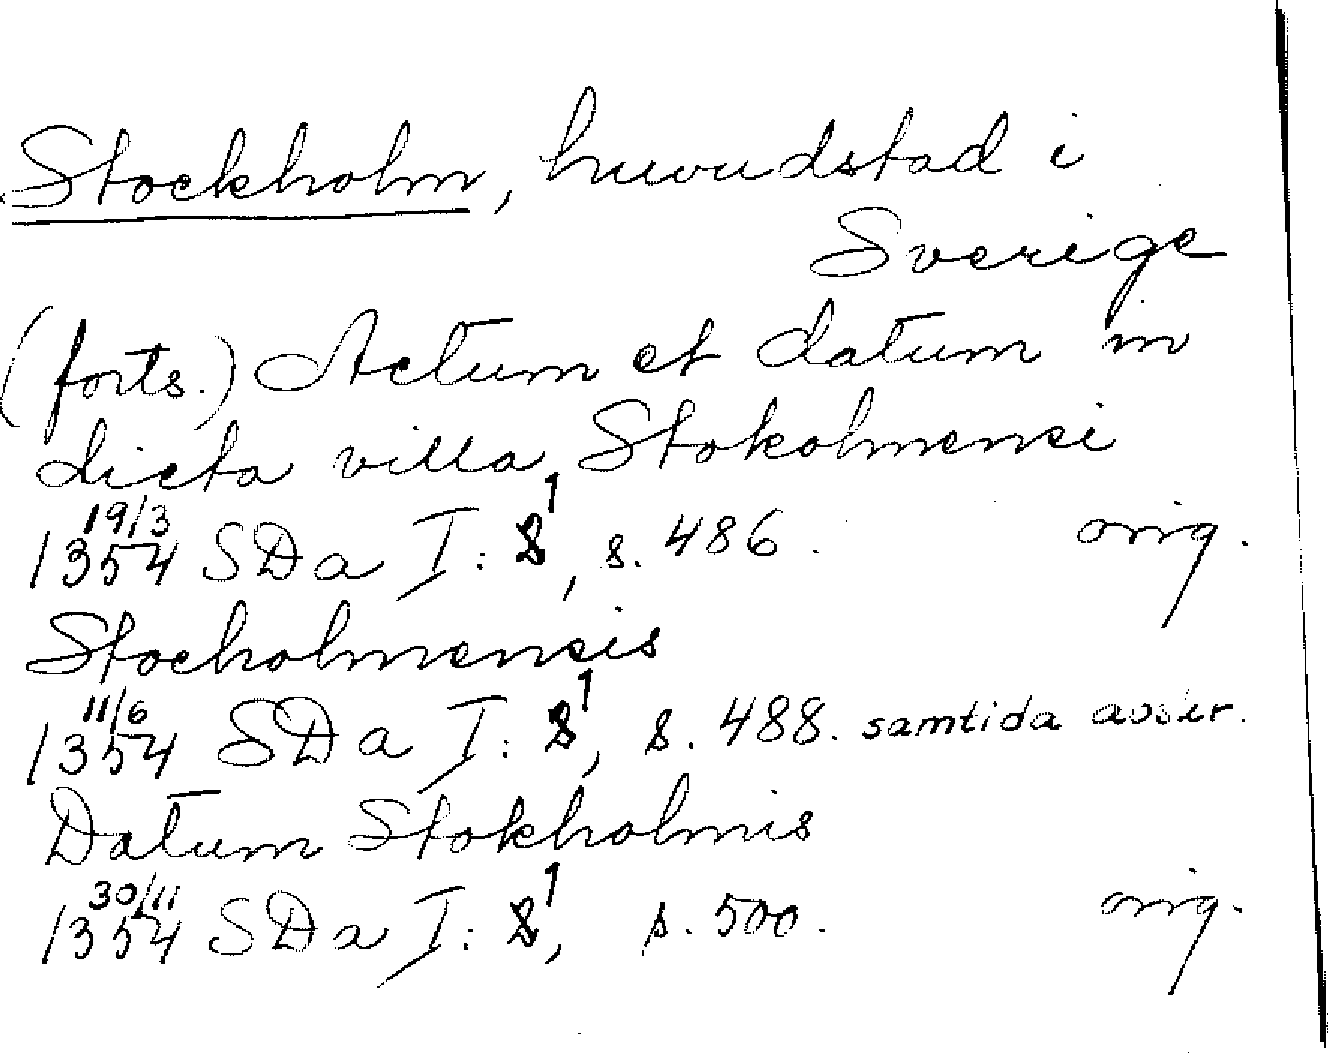 Stockholm, huvudstad i
Sverige
(forts.) Actum et datum in
dicta villa Stokolmensi
19/3 1354 SDa I: 1, s. 486. orig.
Stocholmensis
11/6 1354 SDa I: 1, s. 488. samtida avskr.
Datum Stokholmis
30/11 1354 SDa I: 1, s. 500. orig.